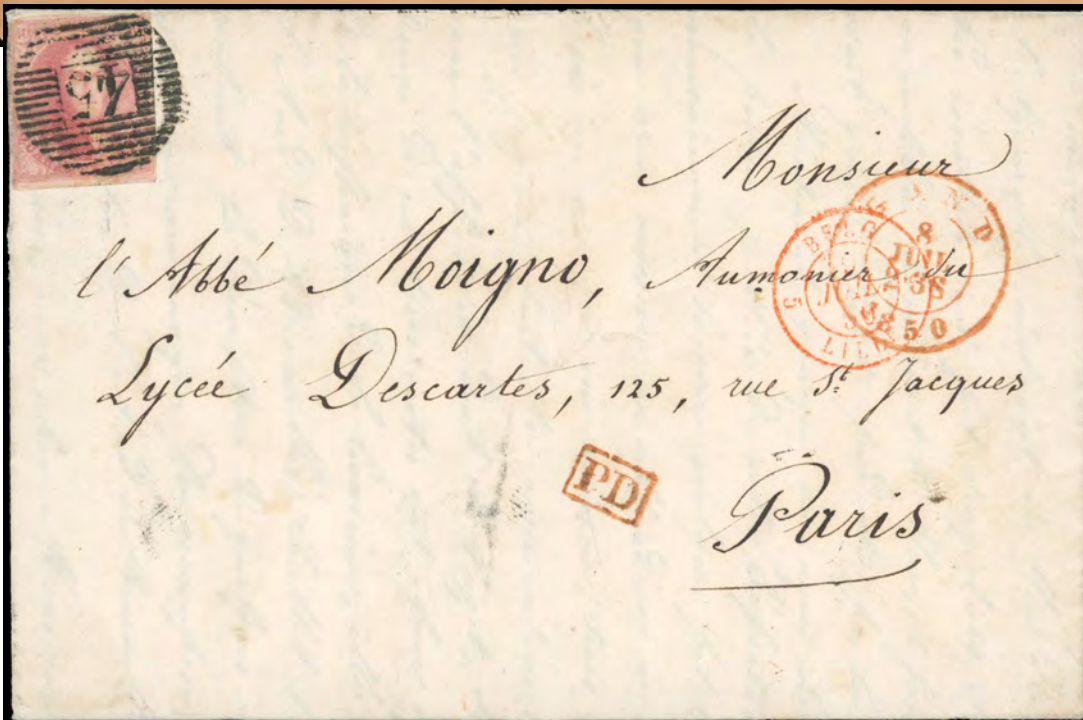 45
Monsieur
l'Abbé Moigno, Aumonier du
Lycée Descartes, 125, rue St. Jacques
Paris
PD
8
JUIN
1850
BELG
5
LILLE